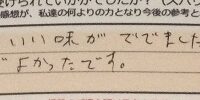 受けられていかがでしたか？（スバ
感想が、私達の何よりの力となり今後の参考と
いい味がででました
でよかったです。